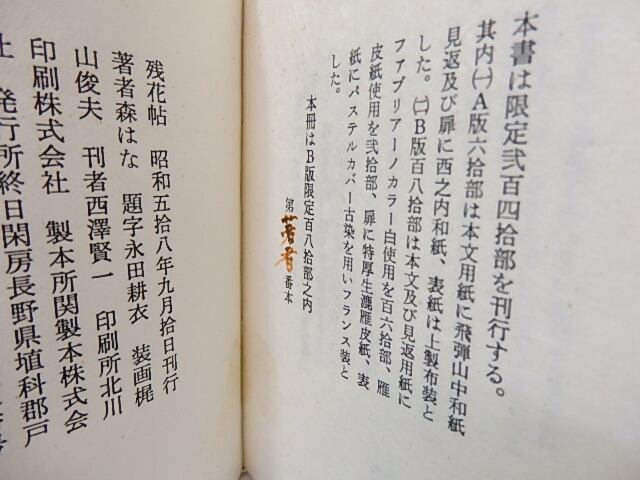 本書は限定弐百四拾部を刊行する。
其内㈠A版六拾部は本文用紙に飛弾山中和紙
見返及び扉に西之内和紙、表紙は上製布装と
した。㈡B版百八拾部は本文及び見返用紙に
ファブリアーノカラー白使用を百六拾部、雁
皮紙使用を弐拾部、扉に特厚生漉雁皮紙、表
紙にパステルカバー古染を用いフランス装と
した。
本冊はB版限定百八拾部之内
第著者番本
残花帖 昭和五拾八年九月拾日刊行
著者森はな 題字永田耕衣 装画梶
山俊夫 刊者西澤賢一 印刷所北川
印刷株式会社 製本所関製本株式会
社 発行所終日閑房長野県埴科郡戸